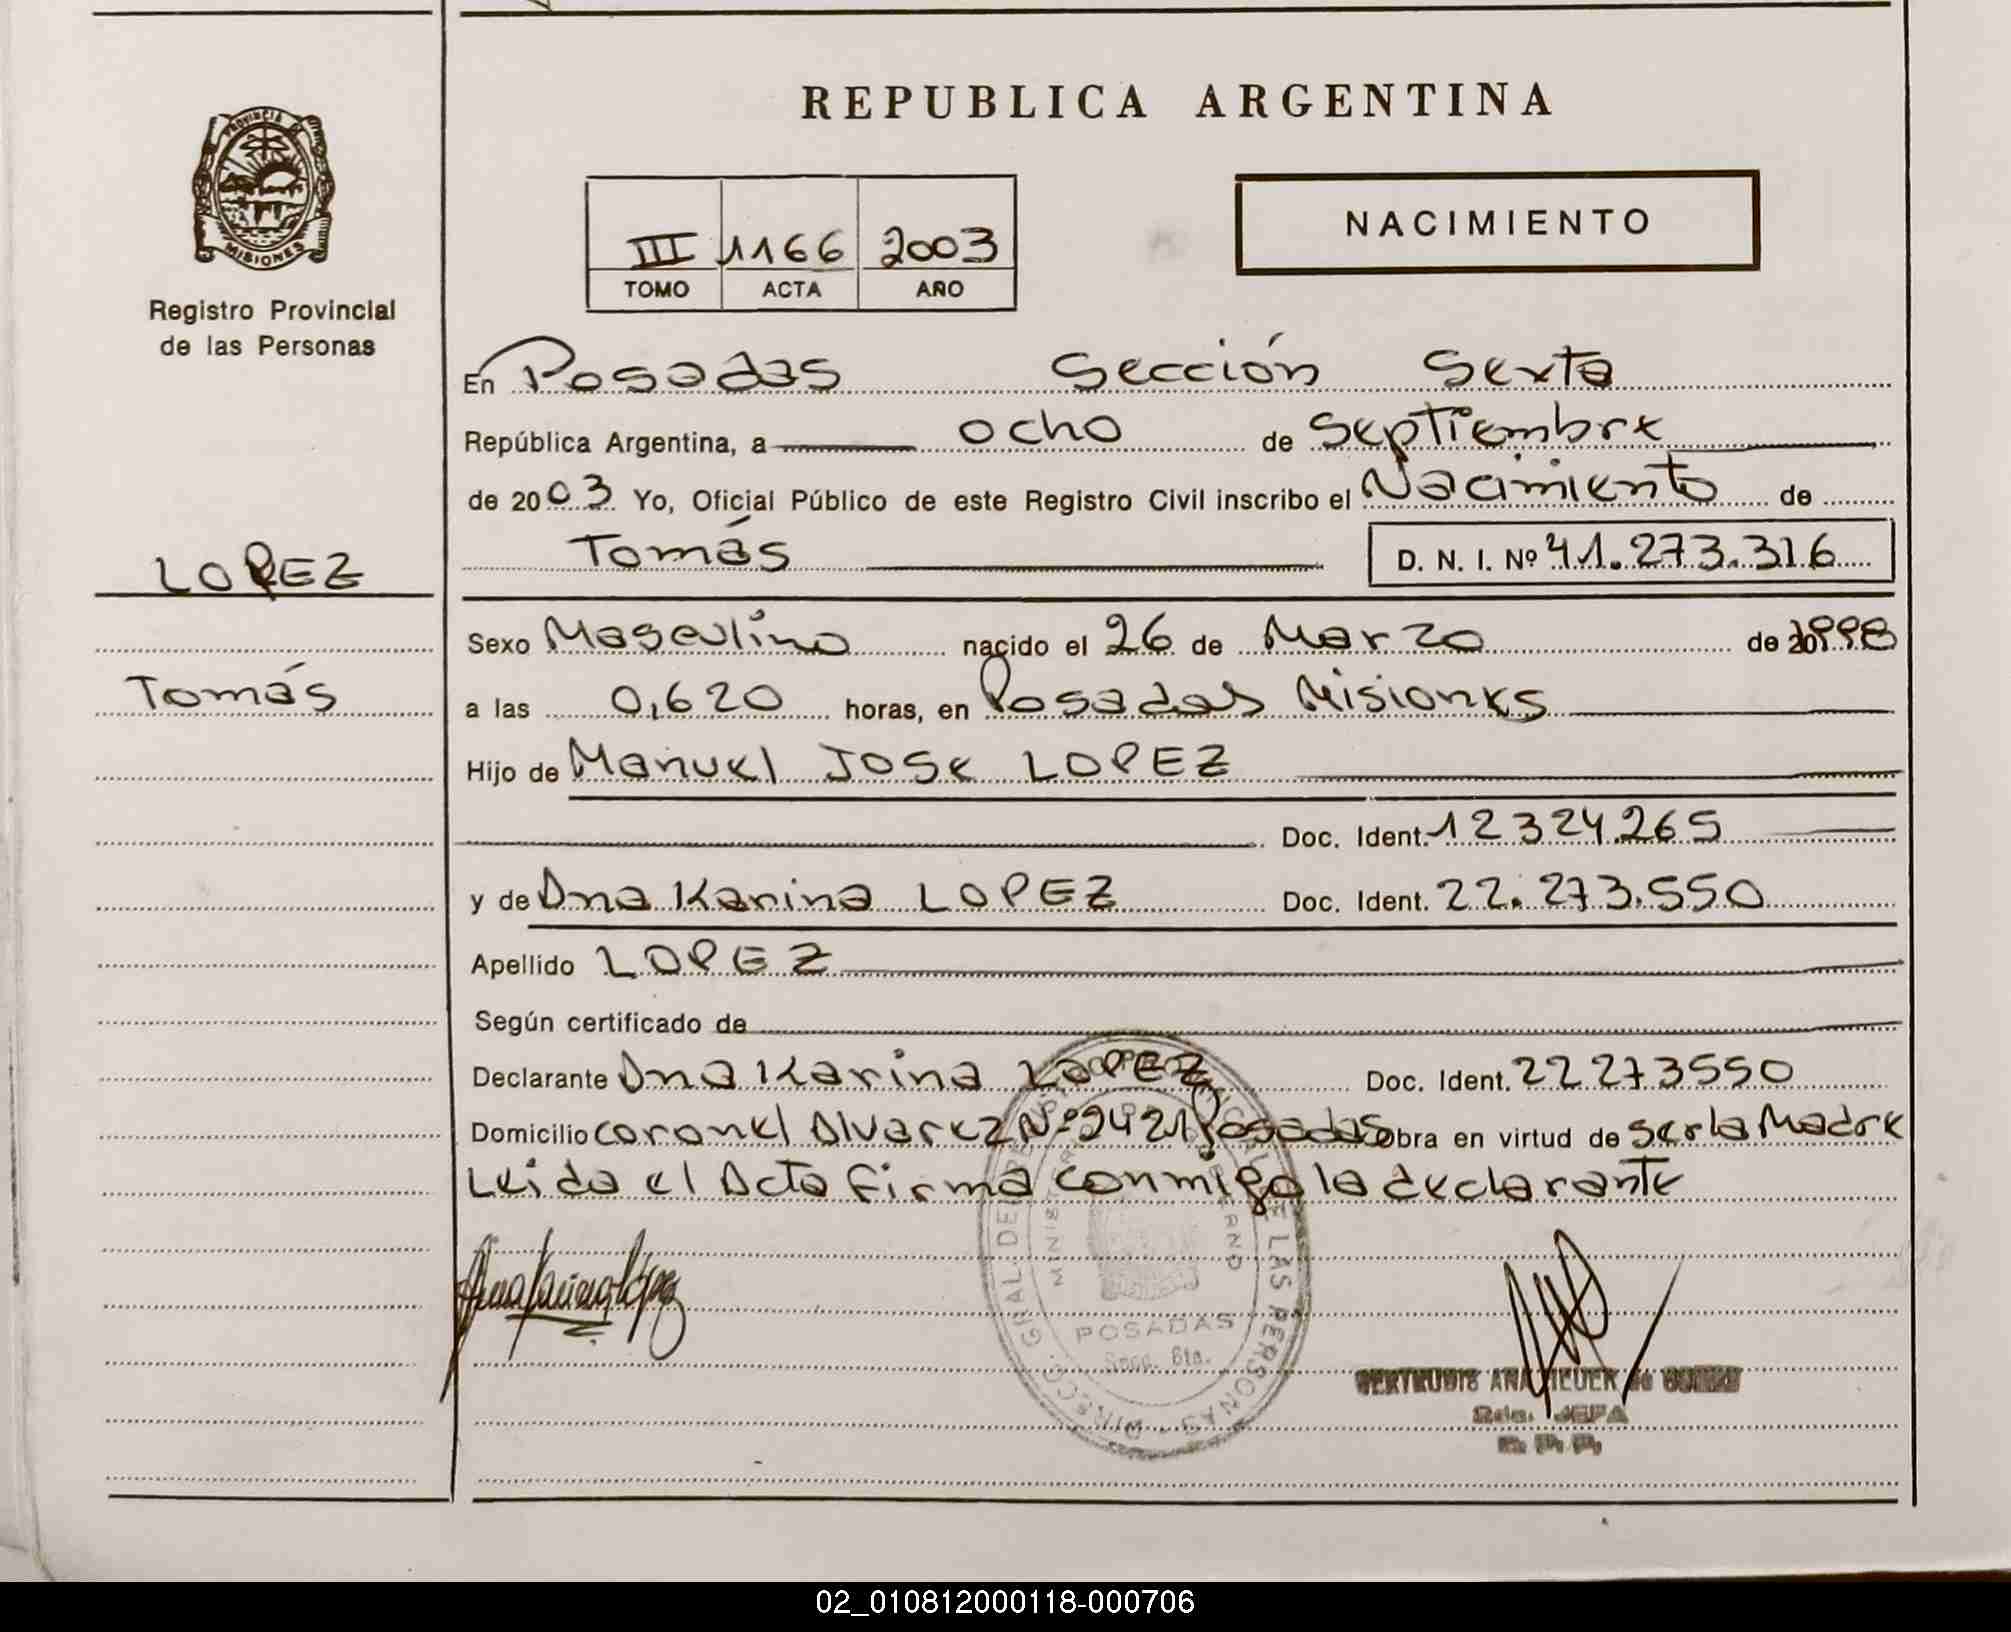 REPUBLICA ARGENTINA
PROVINCIA DE MISIONES
Registro Provincial
de las Personas
NACIMIENTO
III 1166 2003
TOMO ACTA AÑO
En Posadas Sección Sexta
República Argentina, a ocho de septiembre
de 2003 Yo, Oficial Público de este Registro Civil inscribo el Nacimiento de
Tomás D. N. I. Nº 41.273.316
LOPEZ
Tomás
Sexo Masculino nacido el 26 de Marzo de 1998
a las 0,620 horas, en Posadas Misiones
Hijo de Manuel Jose LOPEZ
Doc. Ident. 12324.265
y de Ana Karina LOPEZ Doc. Ident. 22.273.550
Apellido LOPEZ
Según certificado de
Declarante Ana Karina LOPEZ Doc. Ident. 22273550
Domicilio coronel Alvarez Nº 2421 Posadas obra en virtud de ser la Madre
Leida el Acta firma conmigo la declarante
Ana Karina López
DIRECC. GRAL DE LAS PERSONAS
POSADAS
Secc. 6ta.
GERTRUDIS ANA
JEFA
02_010812000118-000706